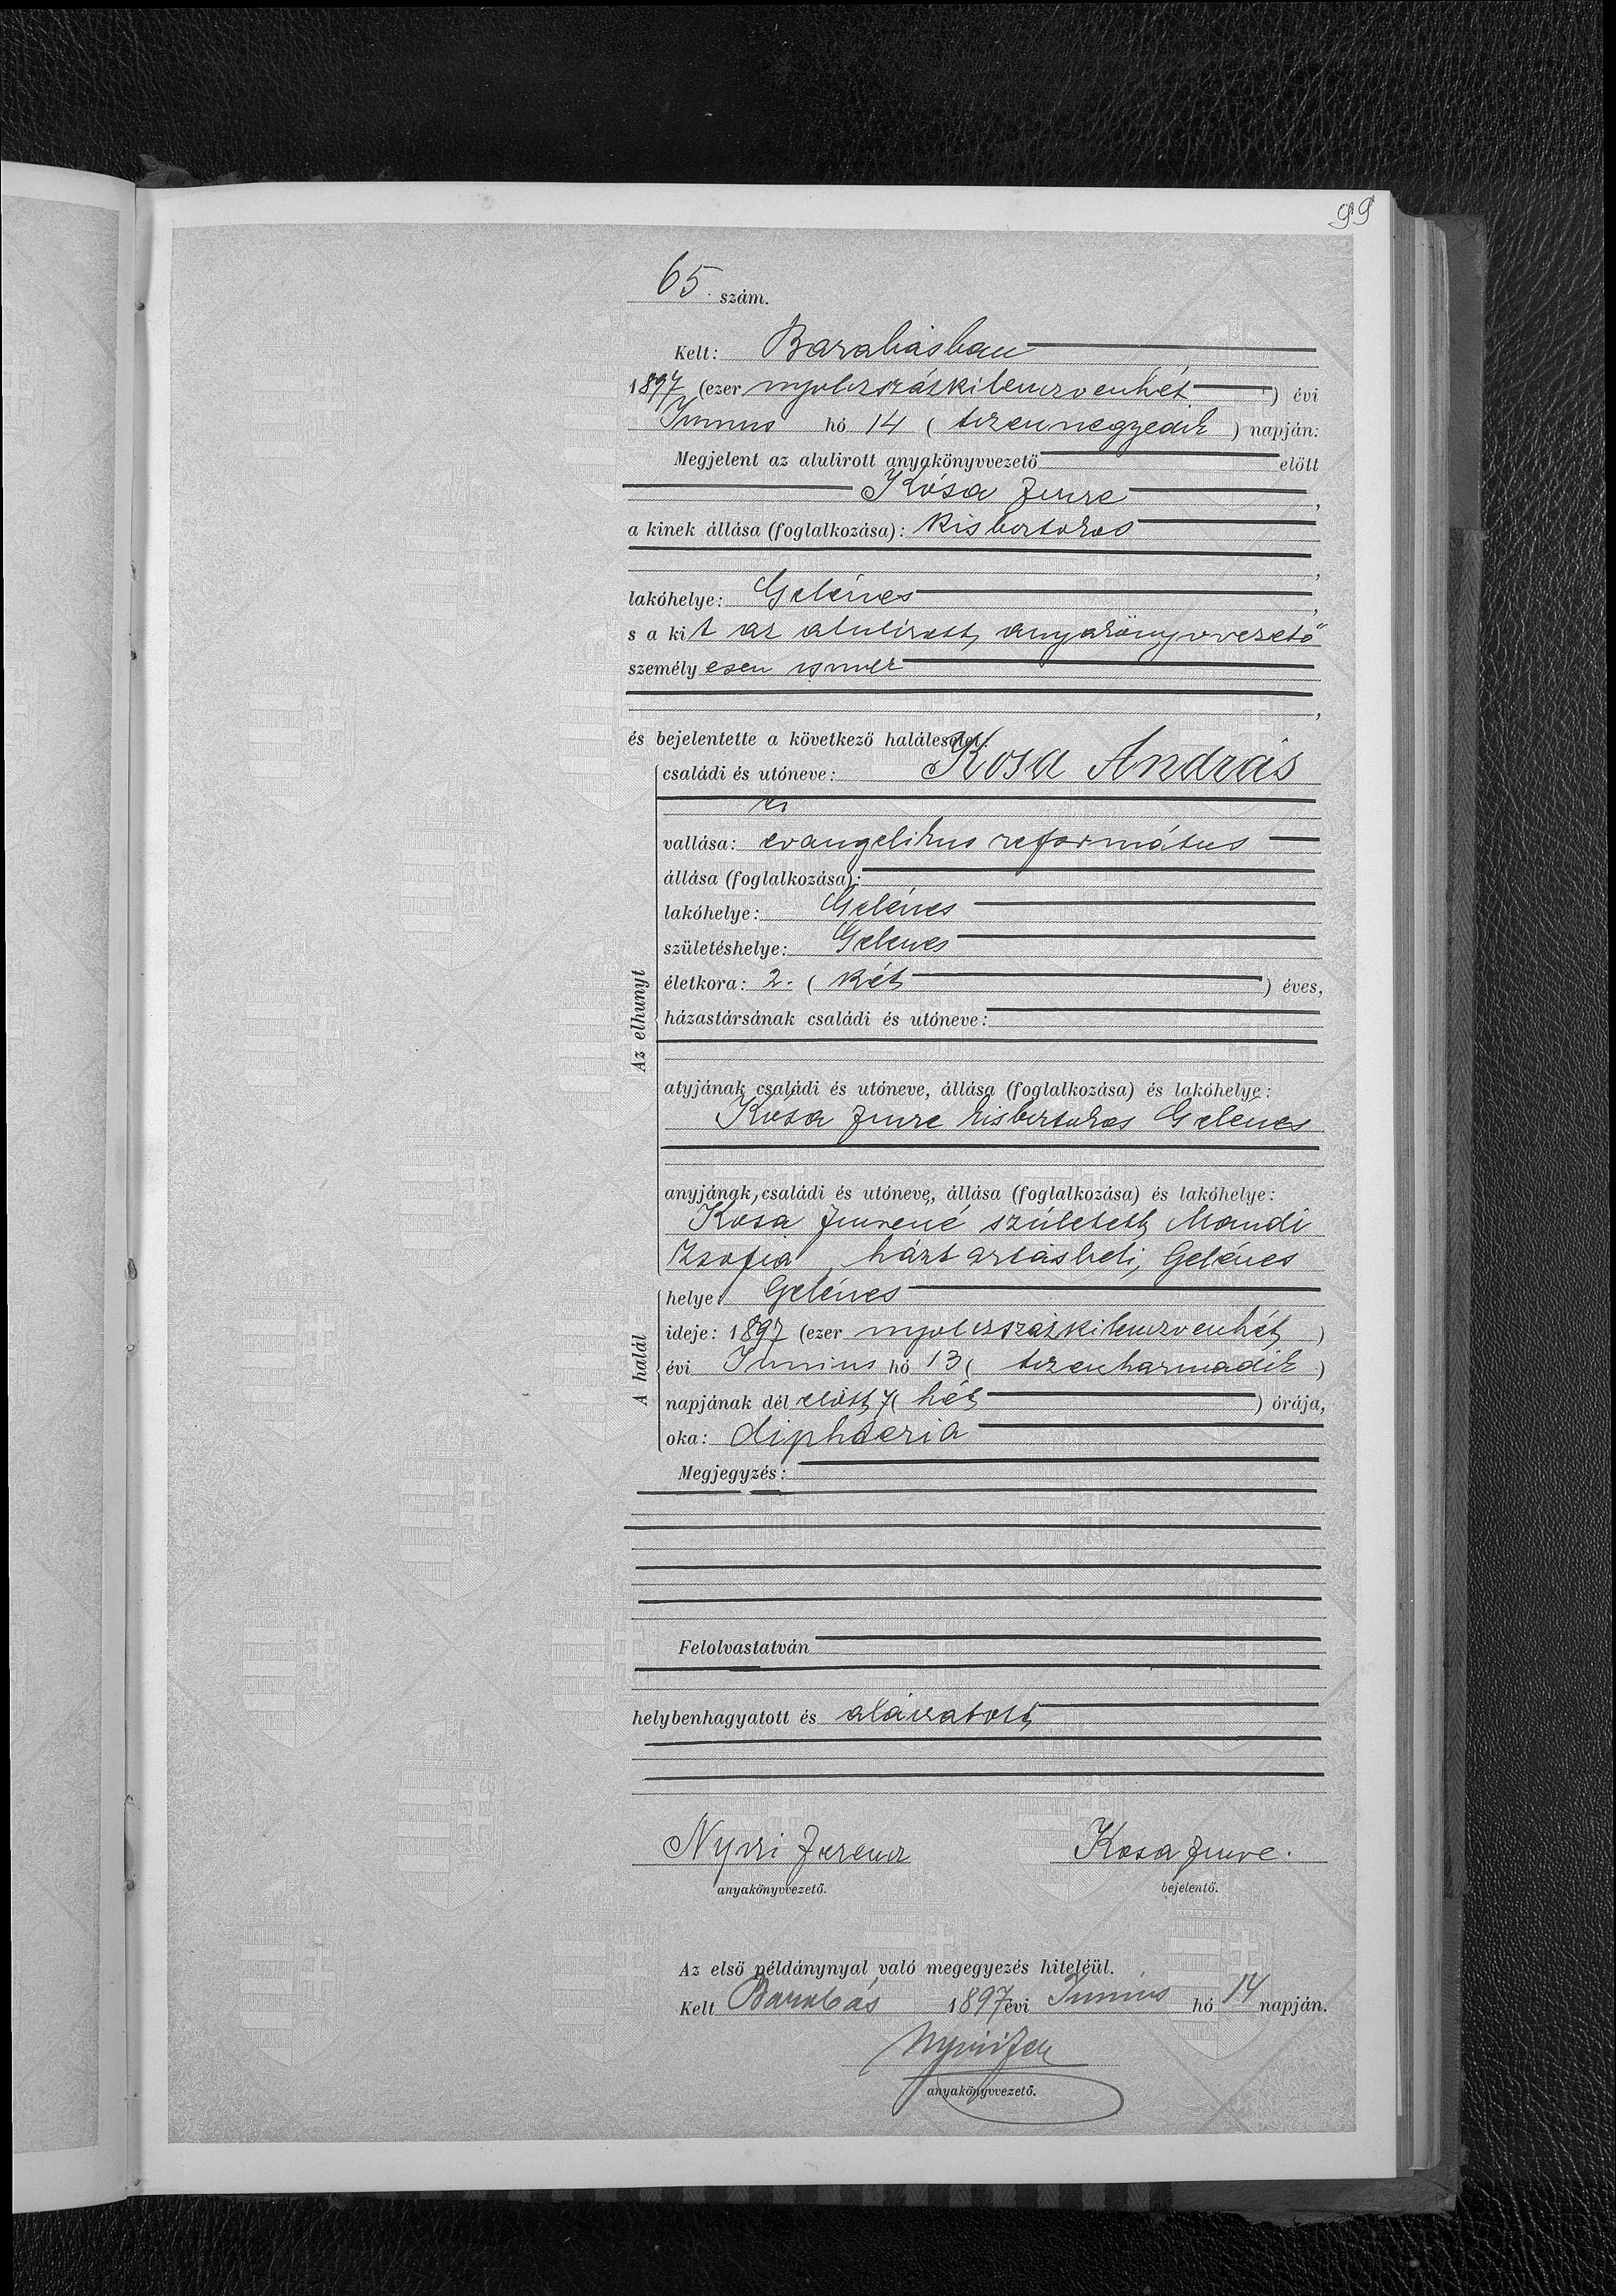 99
65. szám.
Kelt: Barabásban
1897 (ezer nyolczszázkilenczvenhét) évi
Junius hó 14 (tizennegyedik) napján:
Megjelent az alulirott anyakönyvvezető előtt
Kósa Imre,
a kinek állása (foglalkozása): kisbirtokos
,
lakóhelye: Gelénes,
s a kit az alulirott anyakönyvvezető
személyesen ismer
,
és bejelentette a következő halálesetet:
családi és utóneve: Kosa András
ev
vallása: evangelikus református
állása (foglalkozása):
lakóhelye: Gelénes
születéshelye: Gelenes
életkora: 2. (két) éves,
házastársának családi és utóneve:
atyjának családi és utóneve, állása (foglalkozása) és lakóhelye:
Kósa Imre kisbirtokos Gelenes
anyjának családi és utóneve, állása (foglalkozása) és lakóhelye:
Kosa Imrené született Mandi
Zsofia, háztartásbeli, Gelénes
Az elhunyt
helye: Gelénes
ideje: 1897 (ezer nyolczszázkilenczvenhét)
évi Junius hó 13 (tizenharmadik)
napjának dél előtt 7 (hét) órája,
oka: diphteria
A halál
Megjegyzés:
Felolvastatván
helybenhagyatott és aláiratott
Nyiri Ferencz Kosa Imre.
anyakönyvvezető. bejelentő.
Az első példánynyal való megegyezés hiteléül.
Kelt Barabás 1897 évi Junius hó 14 napján.
Nyiri Fer
anyakönyvvezető.